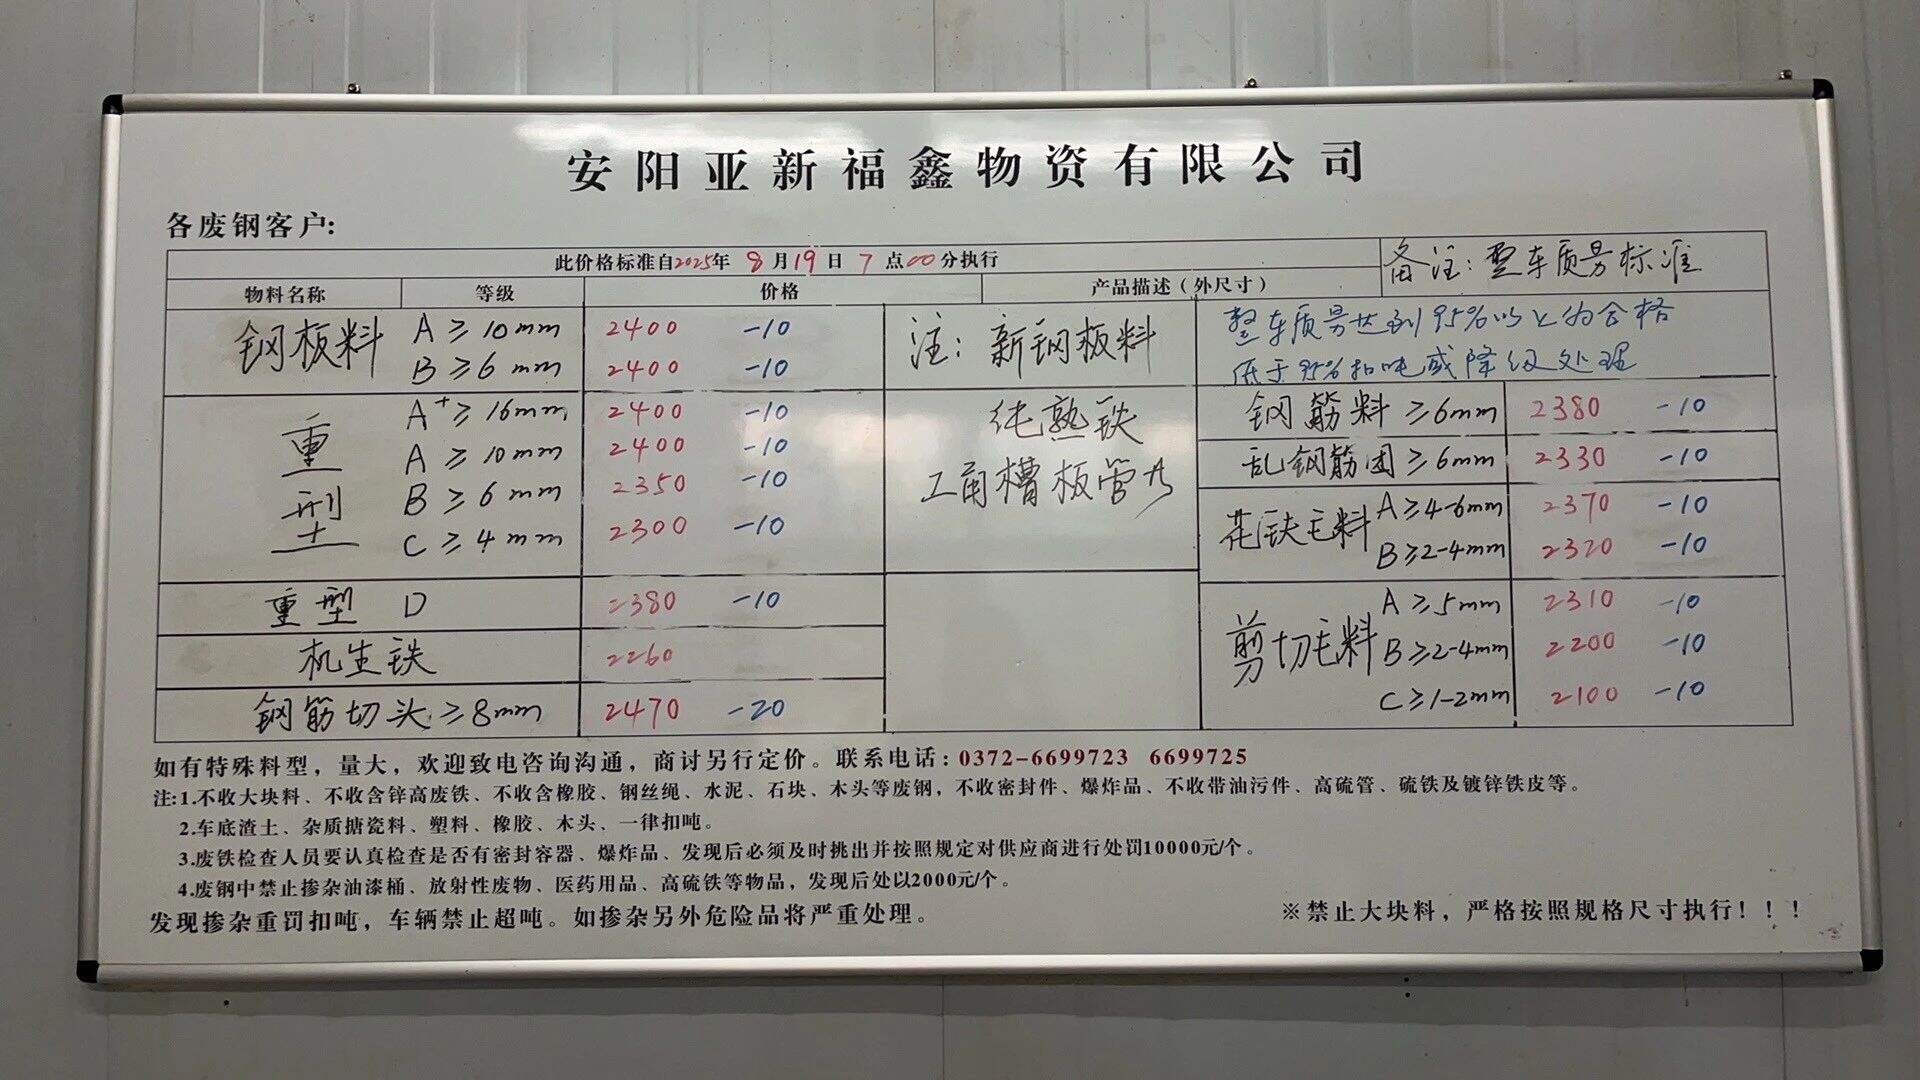 安阳亚新福鑫物资有限公司
各废钢客户:
此价格标准自2025年 8月19日 7点00分执行
备注：整车质量标准
物料名称 等级 价格 产品描述（外尺寸）
钢板料 A≥10mm 2400 -10
B≥6mm 2400 -10
注：新钢板料
整车质量达到95%以上的合格
低于95%扣吨或降级处理
重型 A⁺≥16mm 2400 -10
A≥10mm 2400 -10
B≥6mm 2350 -10
C≥4mm 2300 -10
纯熟铁
工角槽板管
重型 D 2380 -10
机生铁 2260
钢筋切头≥8mm 2470 -20
钢筋料≥6mm 2380 -10
乱钢筋团≥6mm 2330 -10
花铁毛料 A≥4-6mm 2370 -10
B≥2-4mm 2320 -10
剪切毛料 A≥5mm 2310 -10
B≥2-4mm 2200 -10
C≥1-2mm 2100 -10
如有特殊料型，量大，欢迎致电咨询沟通，商讨另行定价。联系电话：0372-6699723 6699725
注:1.不收大块料、不收含锌高废铁、不收含橡胶、钢丝绳、水泥、石块、木头等废钢，不收密封件、爆炸品、不收带油污件、高硫管、硫铁及镀锌铁皮等。
2.车底渣土、杂质搪瓷料、塑料、橡胶、木头、一律扣吨。
3.废铁检查人员要认真检查是否有密封容器、爆炸品、发现后必须及时挑出并按照规定对供应商进行处罚10000元/个。
4.废钢中禁止掺杂油漆桶、放射性废物、医药用品、高硫铁等物品，发现后处以2000元/个。
发现掺杂重罚扣吨，车辆禁止超吨。如掺杂另外危险品将严重处理。
※禁止大块料，严格按照规格尺寸执行！！！